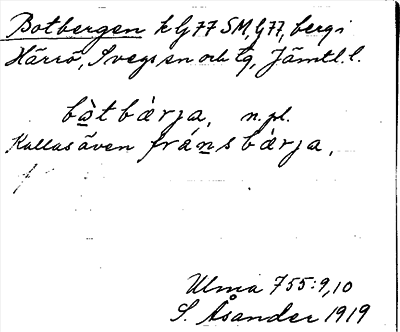 Botbergen k Lj77 SM, Lj77, berg i
Härrö, Svegs sn och tg, Jämtl. l.
bò̲tbær̀ja, n.pl.
Kallas även frán̲sbær̀ja,
Ulma 755:9,10
S. Åsander 1919